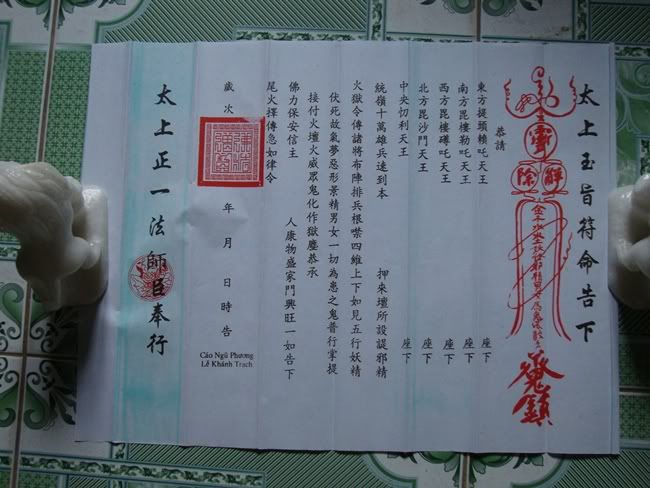 太上玉旨符命告下
解除
恭請
東方提頭賴吒天王 座下
南方毘樓勒吒天王 座下
西方毘樓磚吒天王 座下
北方毘沙門天王 座下
中央忉利天王 座下
統領十萬雄兵速到本 押來壇所設謊邪精
火獄令傳諸將布陣排兵根祭四維上下如見五行妖精
伏死故氣夢惡形景精男女一切為患之鬼普行掌提
接付火壇火威眾鬼化作獄塵恭承
佛力保安信主 人康物盛家門興旺一如告下
尾火擇傳急如律令
歲次 年 月 日時告
Cáo Ngũ Phương
Lê Khánh Trạch
太上正一法師臣奉行